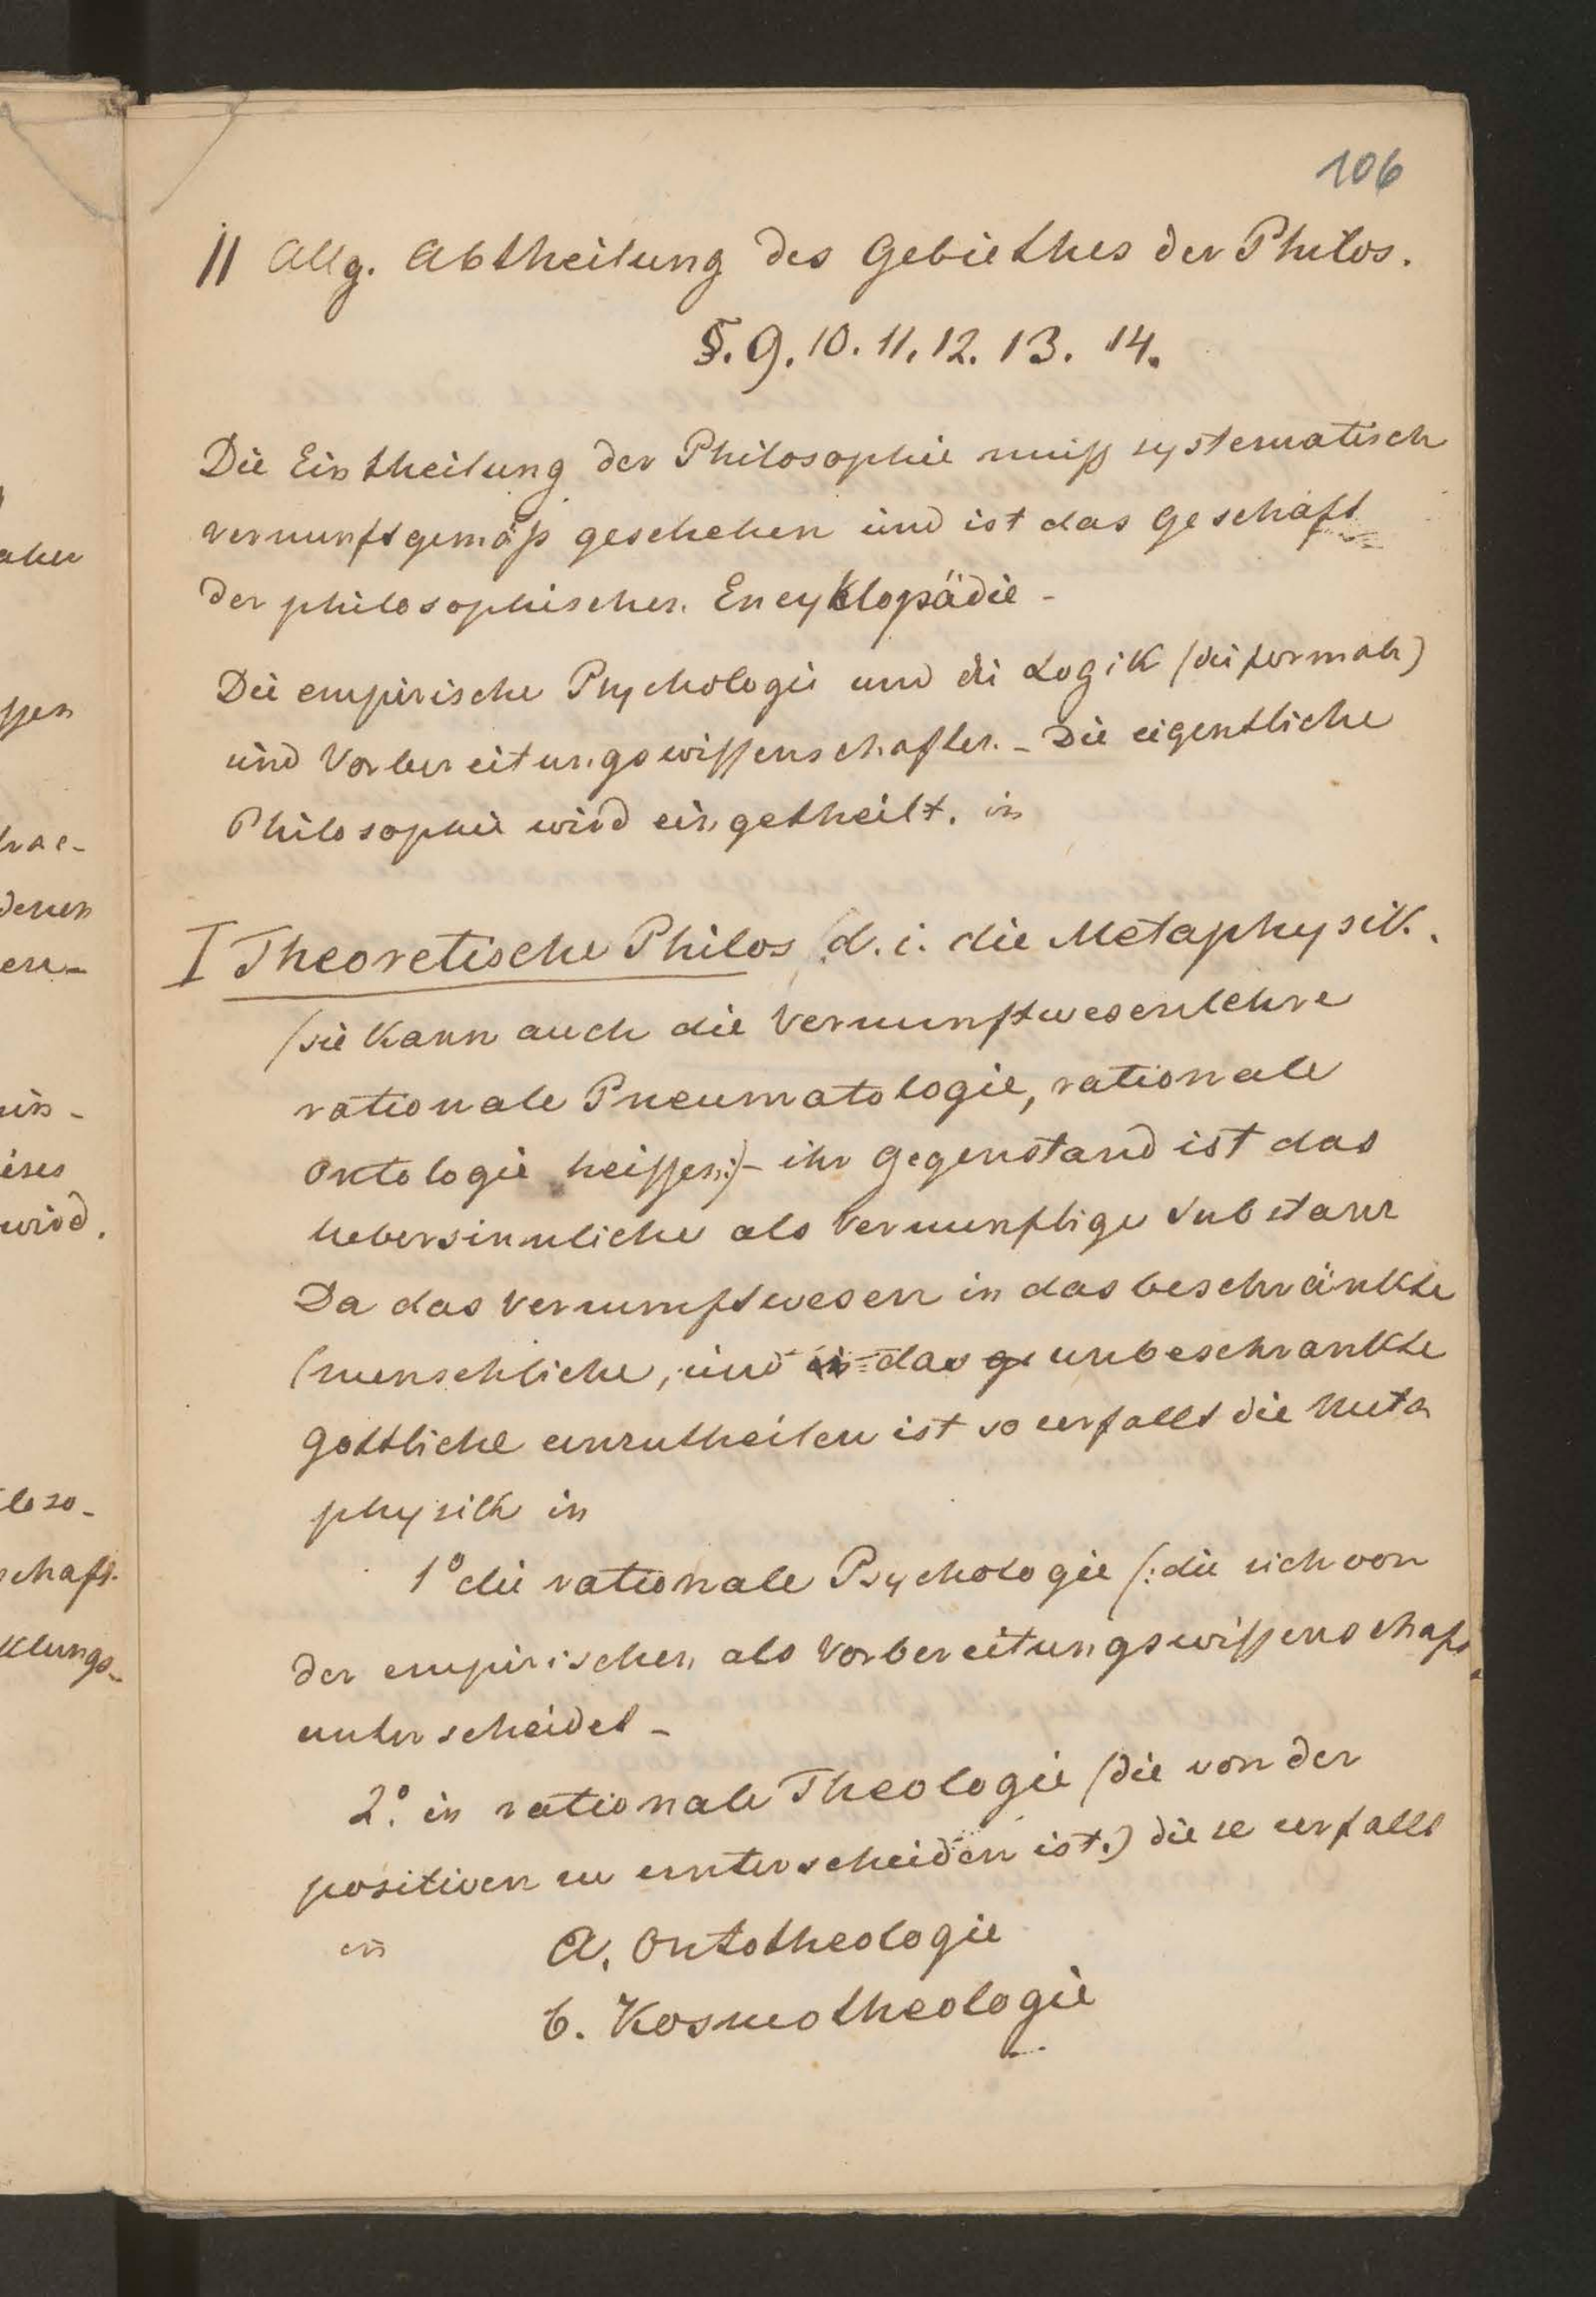 106
II Allg. Abtheilung des Gebiethes der Philos.
§. 9. 10. 11. 12. 13. 14.
Die Eintheilung der Philosophie muß systematisch
vernunftgemäß geschehen und ist das Geschäft
der philosophischen Encyklopädie -
Die empirische Psychologie und di Logik (die formale)
sind Vorbereitungswissenschaften. - Die eigentliche
Philosophie wird eingetheilt. in
I Theoretische Philos (d. i. die Metaphysik.
(sie kann auch die Vernunftwesenlehre
rationale Pneumatologie, rationale
Ontologie heissen:) - ihr Gegenstand ist das
Uebersinnliche als Vernunftige Substanz
Da das Vernunftwesen in das beschränkte
(menschliche, und in das ge unbeschrankte
Gottliche einzutheilen ist so zerfallt die Meta
physik in
1° die rationale Psychologie (: die sich von
der empirischen als Vorbereitungswissenschaft
unterscheidet -
2°. in rationale Theologie (die von der
positiven zu unterscheiden ist.) diese zerfallt
in a. Ontotheologie
b. Kosmotheologie
aher
ssen
denen
en-
ein-
eises
wird.
loso-
schaft.
klungs-